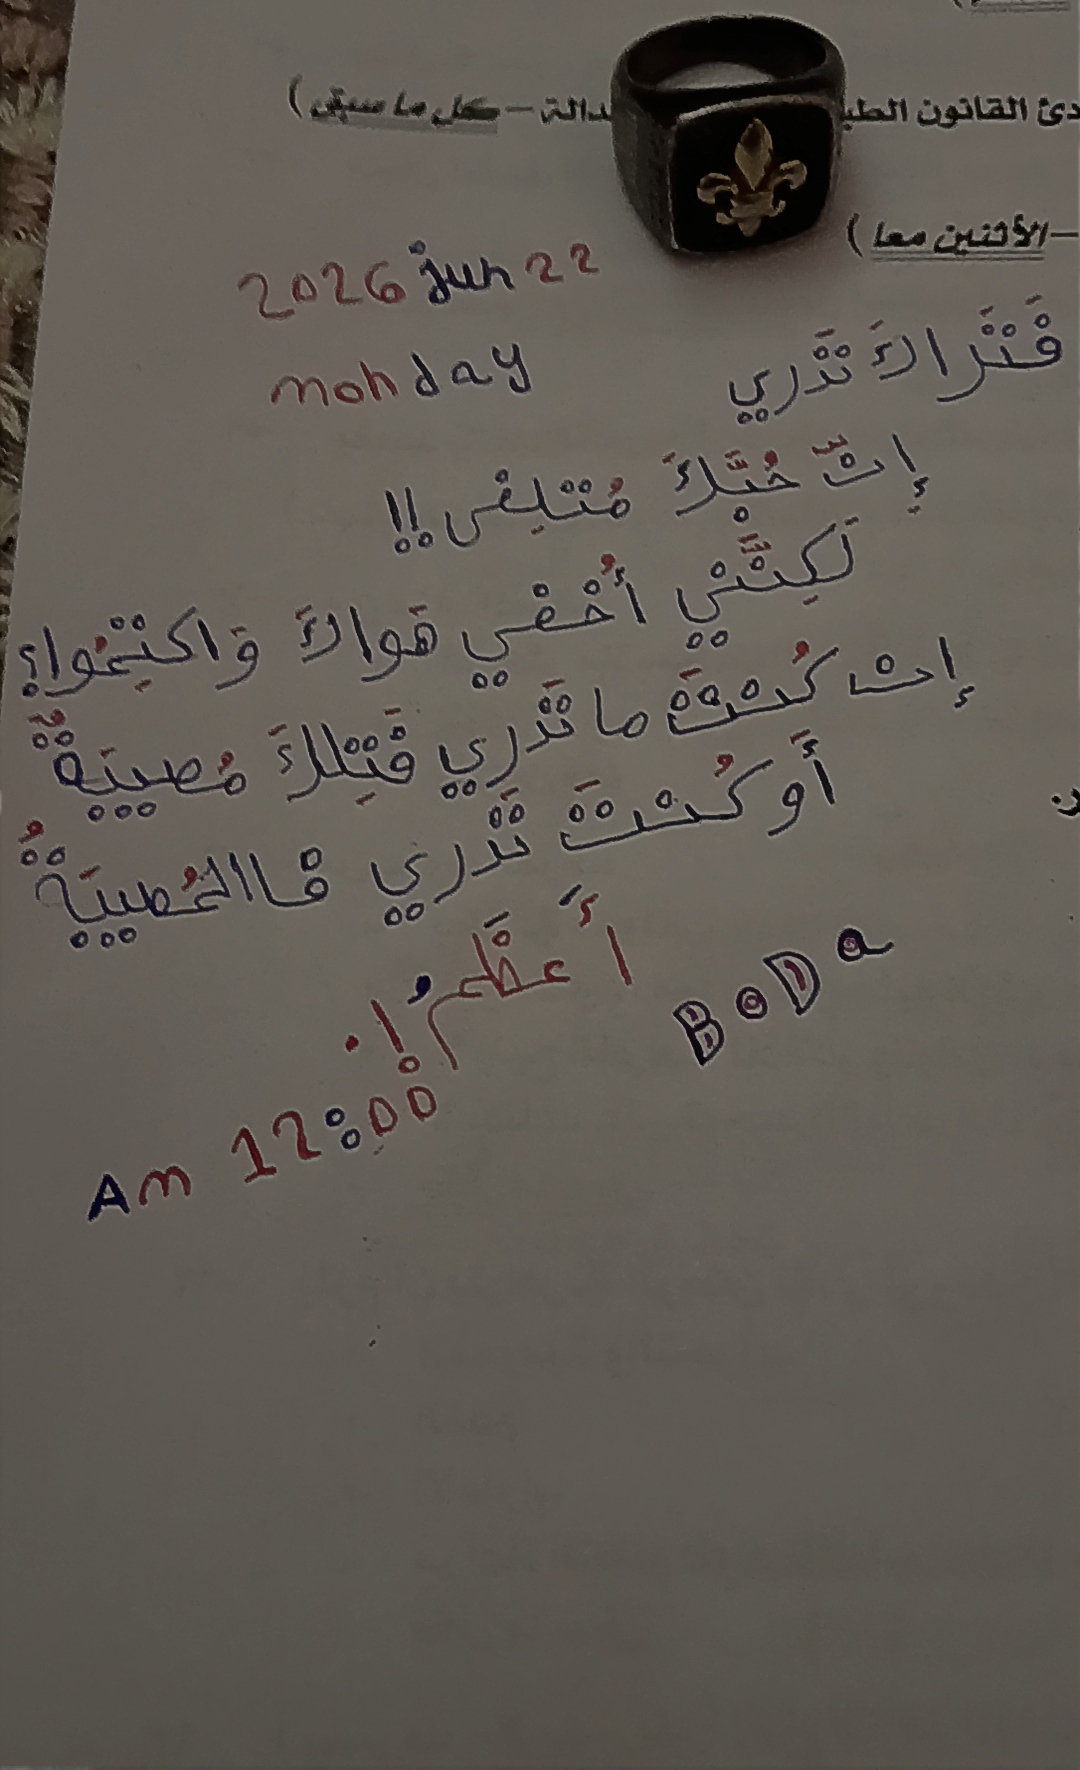 دئ القانون الطب
دالة – كل ما سبق )
–الأثنين معا )
2026 jun 22
monday
فَتَراكَ تَدْري
إنّ حُبّكَ مُتلِفي !!
لَكِنّني أُخْفي هَواكَ وَاكتِمُوا؟
إن كُنتَ ما تَدْري فَتِلكَ مُصيبَةٌ
أَو كُنْتَ تَدْري فاالمُصيبَةُ
أَعظَمُ !.
BoDa
Am 12:00